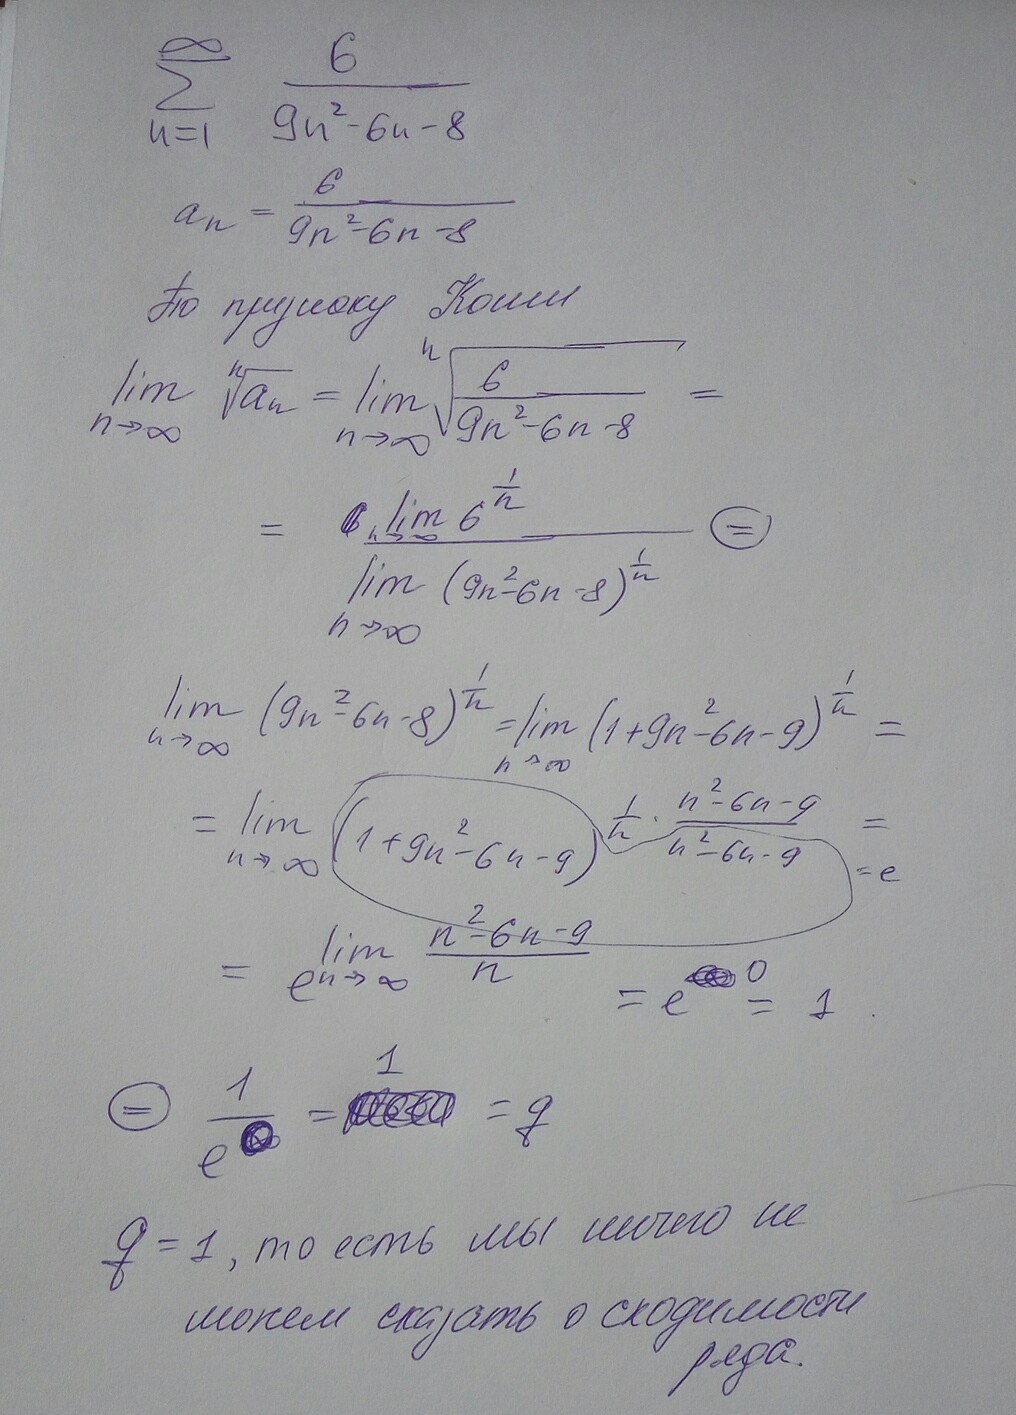 ∞
∑ 6 / (9n² - 6n - 8)
n=1
aₙ = 6 / (9n² - 6n - 8)
По признаку Коши
lim n→∞ ⁿ√aₙ = lim n→∞ ⁿ√(6 / (9n² - 6n - 8)) =
= lim n→∞ 6^(1/n) / lim n→∞ (9n² - 6n - 8)^(1/n) ⊜
lim n→∞ (9n² - 6n - 8)^(1/n) = lim n→∞ (1 + 9n² - 6n - 9)^(1/n) =
= lim n→∞ (1 + 9n² - 6n - 9)^(1/n · (n² - 6n - 9)/(n² - 6n - 9)) =
= e
= e^(lim n→∞ (n² - 6n - 9)/n) = e⁰ = 1.
⊜ 1/e = 1 = q
q = 1, то есть мы ничего не
можем сказать о сходимости
ряда.